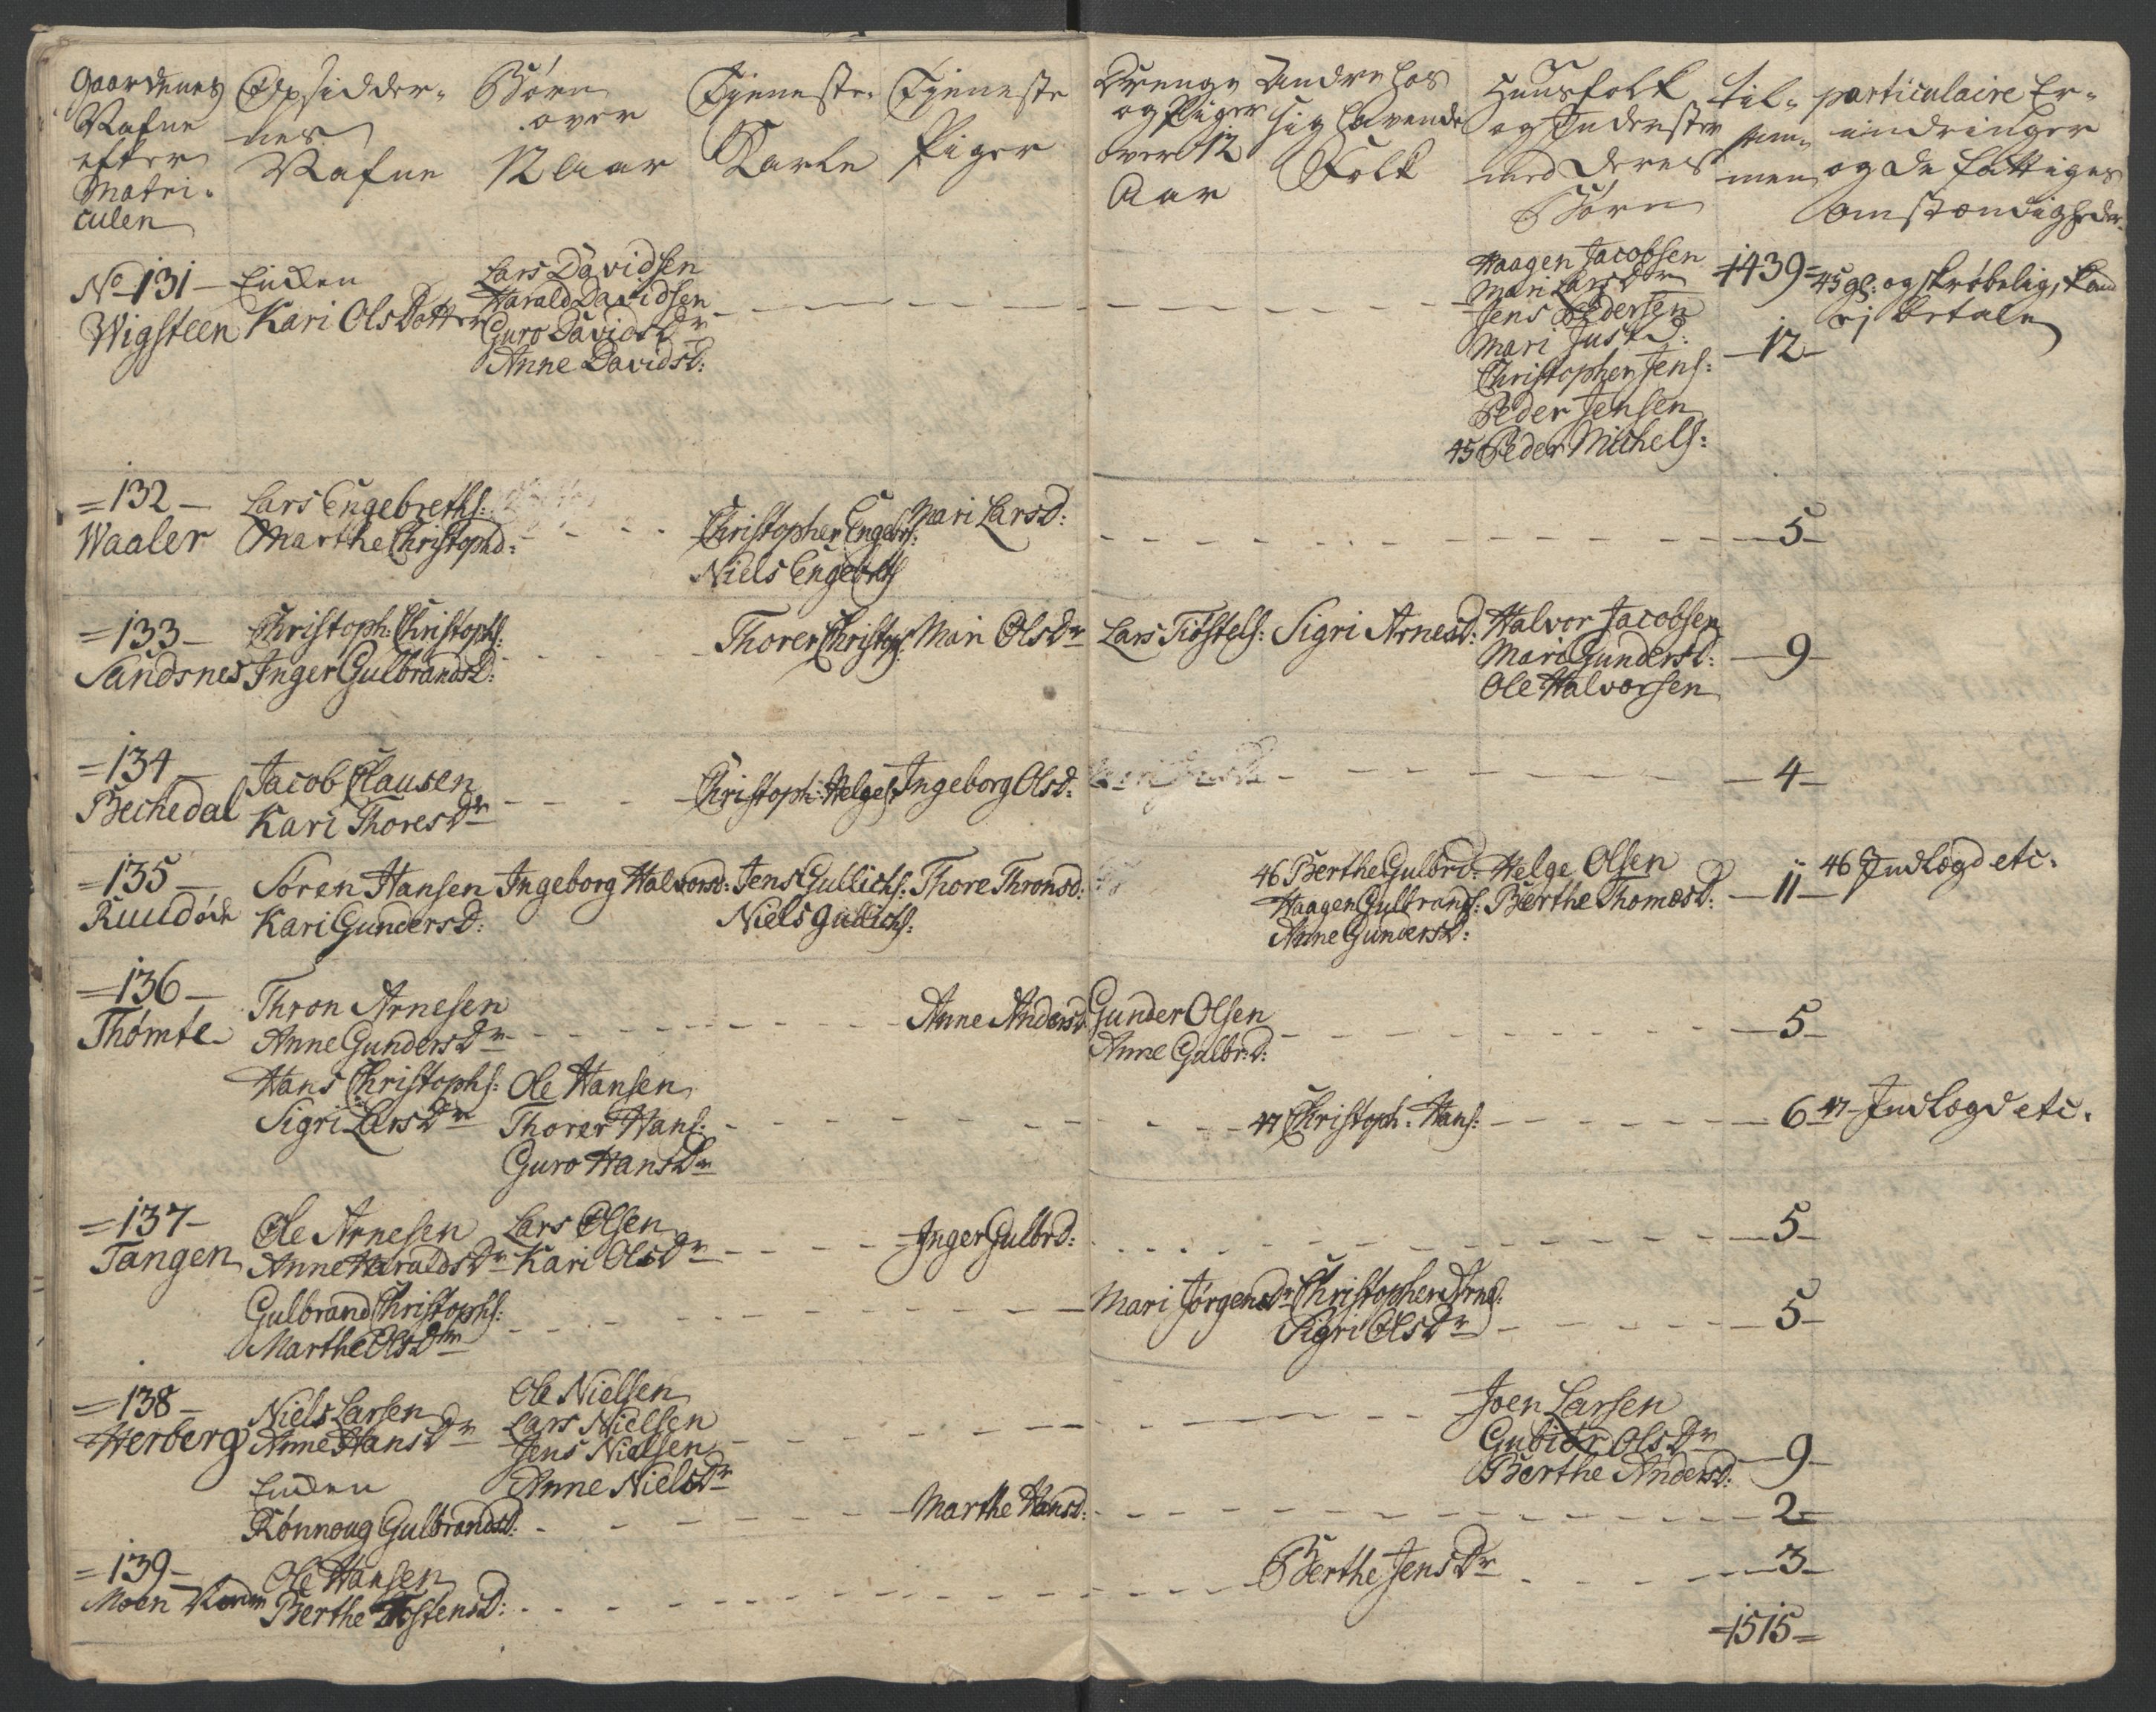 Gaardenes Nafne efter Matri- culen
Opsidder- nes Nafne
Børn over 12 Aar
Tjeneste Karle
Tjeneste Piger
Drenge og Piger over 12 Aar
Andre hos sig havende Folk
Huusfolk og Inderster med deres Børn
til- sam- men
particulaire Er- indringer og de fattiges omstændigheder
No 131 Wigsteen
Enken Kari OlsDatter
Lars Davidsen
Harald Davidsen
Guro DavidsDr
Anne Davidsd:
Haagen Jacobsen
Mari LarsDr
Jens Pedersen
Mari Justd:
Christopher Jens:
Peder Jensen
45 Peder Michels:
=1439=
12
45 gl: og skrøbelig, kand
ej betale
=132 Waaler
Lars Engebreths:
Marthe Christophd:
Christopher Engebrs:
Niels Engebrths
Mari Larsd:
5
=133 Sandsnes
Christoph: Christophs:
Inger Gulbrandsd:
Thorer Christophs:
Mari OlsDr
Lars Tiøstels:
Sigri Arnesd:
Halvor Jacobsen
Mari Gundersd:
Ole Halvorsen
9
=134 Bechedal
Jacob Clausen
Kari ThoresDr
Christoph: Helges:
Ingeborg Olsd:
4
=135 Ruudøde
Søren Hansen
Kari Gundersd:
Ingeborg Halvorsd:
Jens Gullichs:
Niels Gullichs:
Thore Thronsd:
46 Berthe Gulbrd:
Haagen Gulbrands:
Anne Gundersd:
Helge Olsen
Berthe Thomesd:
11
46 Indlægd etc.
=136 Thømte
Thron Arnesen
Anne GundersDr
Anne Andersd:
Gunder Olsen
Anne Gulbrd:
5
Hans Christophs:
Sigri LarsDr
Ole Hansen
Thorer Hans:
Guro HansDr
47 Christoph: Hans:
6
47 Indlægd etc.
=137 Tangen
Ole Arnesen
Anne HaraldsDr
Lars Olsen
Kari OlsDr
Inger Gulbrd:
5
Gulbrand Christophs:
Marthe OlsDtr
Mari JørgensDr
Christopher
Sigri OlsDr
5
=138 Herberg
Niels Larsen
Anne HansDr
Ole Nielsen
Lars Nielsen
Jens Nielsen
Anne NielsDr
Joen Larsen
Gubiør OlsDr
Berthe Andersd:
9
Enken
Rønnoug Gulbrandsd:
Marthe Hansd:
2
=139 Moen
Ole Hansen
Berthe Tostensd:
Berthe JensDr
3
=1515=